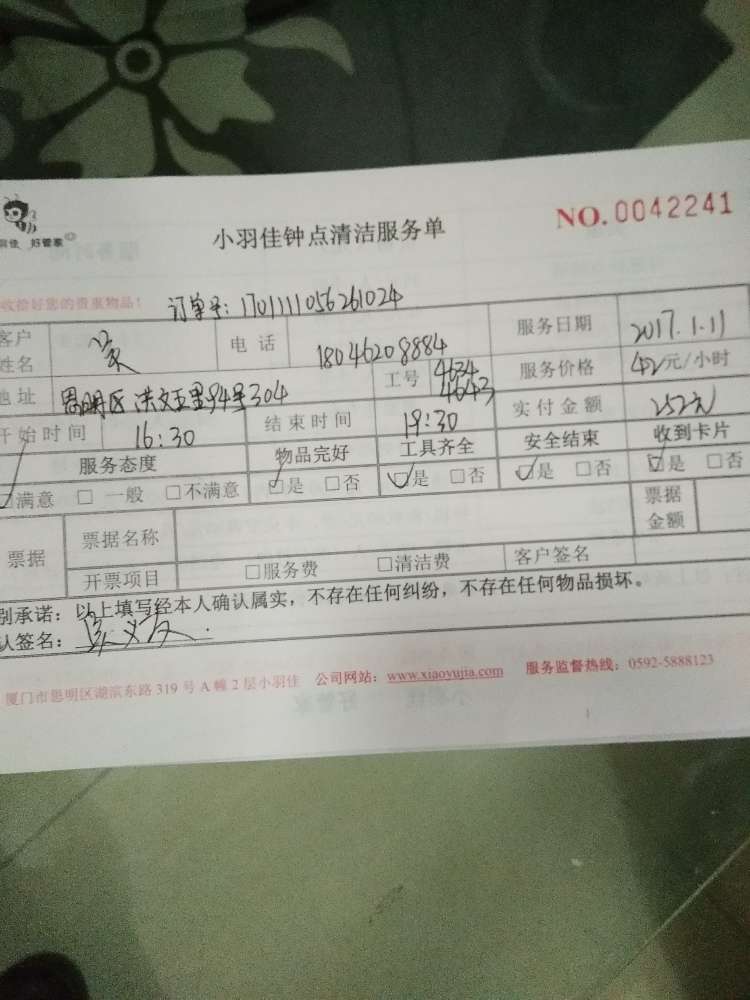 好管家
小羽佳钟点清洁服务单
NO. 0042241
收拾好您的贵重物品！
订单号：170111056261024
客户姓名
电话 18046208884
服务日期 2017.1.11
地址 思明区洪文五里94号304
工号 4634 4643
服务价格 42元/小时
开始时间 16:30
结束时间 19:30
实付金额 252元
服务态度 物品完好 工具齐全 安全结束 收到卡片
□满意 □一般 □不满意 □是 □否 □是 □否 □是 □否 □是 □否
票据 票据名称 票据金额
开票项目 □服务费 □清洁费 客户签名
别承诺：以上填写经本人确认属实，不存在任何纠纷，不存在任何物品损坏。
认签名：
厦门市思明区湖滨东路 319 号 A 幢 2 层小羽佳 公司网站：www.xiaoyujia.com 服务监督热线：0592-5888123